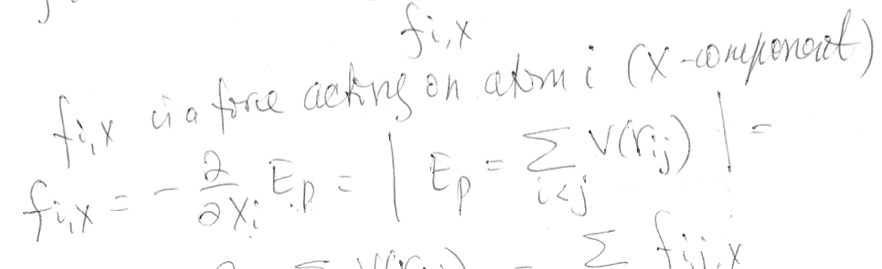 f_{i,x}
f_{i,x} is a force acting on atom i (x-component)
f_{i,x} = - ∂/∂x_i E_p = | E_p = Σ_{i<j} V(r_{ij}) | =
Σ V(r_{ij}) = Σ f_{ij,x}